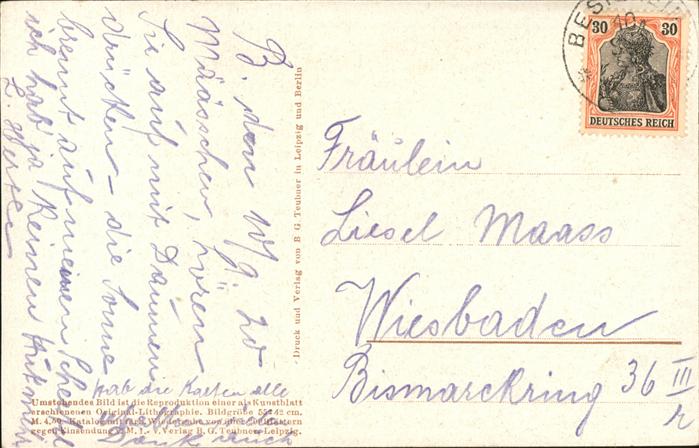 B. den 10/9. 20
Määsschen, hören
Sie auf mit Daumen
drücken – die Sonne
brennt auf meinen
ich hab ja keinen Hut mehr
hab die Karten alle
Dank euch
Umstehendes Bild ist die Reproduktion einer als Kunstblatt
erschienenen Original-Lithographie. Bildgröße 55×42 cm.
M. 4.50. Katalog mit farb. Wiedergabe von über 200 Blättern
gegen Einsendung v. M. 1.– V. Verlag B. G. Teubner, Leipzig.
Druck und Verlag von B G Teubner in Leipzig und Berlin
30 30
DEUTSCHES REICH
Fräulein
Liesel Maass
Wiesbaden
Bismarckring 36 III
r